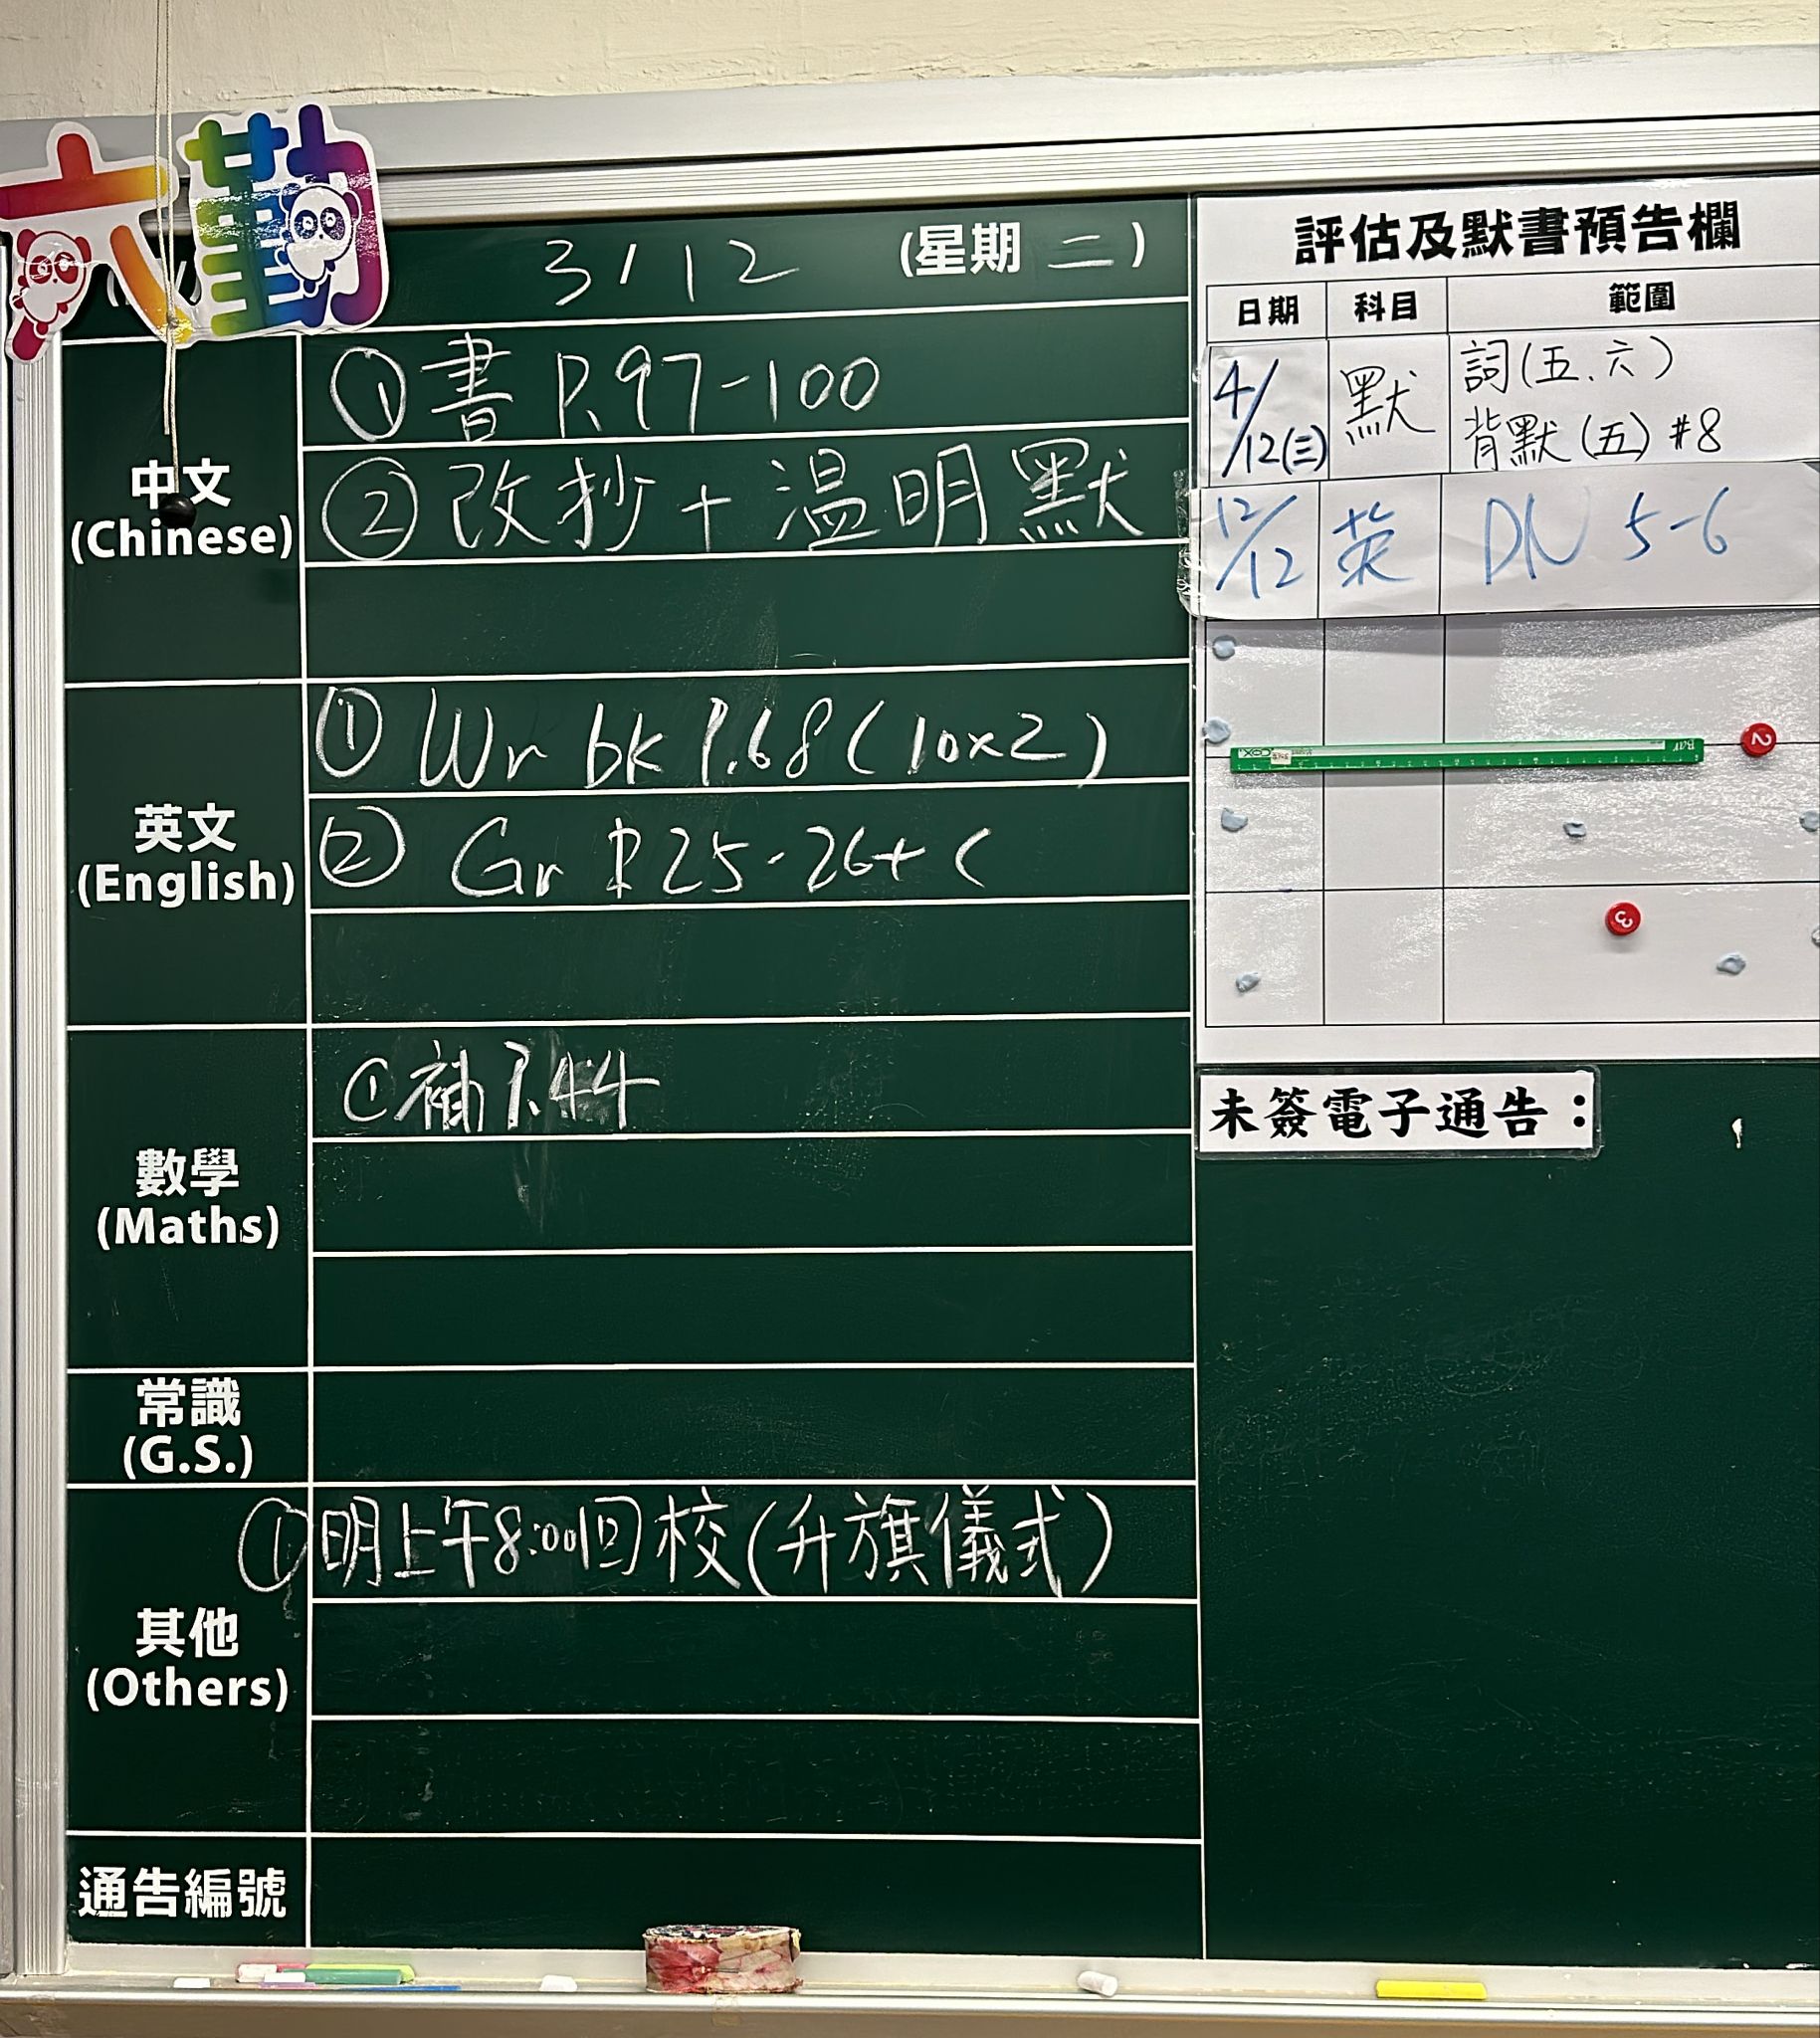 六勤
3/12 (星期 二)
中文
(Chinese)
① 書 P.97-100
② 改抄 + 溫明默
英文
(English)
① Wr bk P.68 (10x2)
② Gr P.25-26 + C
數學
(Maths)
① 補 P.44
常識
(G.S.)
其他
(Others)
① 明上午8:00回校(升旗儀式)
通告編號
評估及默書預告欄
日期 科目 範圍
4/12(三) 默 詞(五、六)
背默(五) #8
12/12 英 DN 5-6
2
3
未簽電子通告：